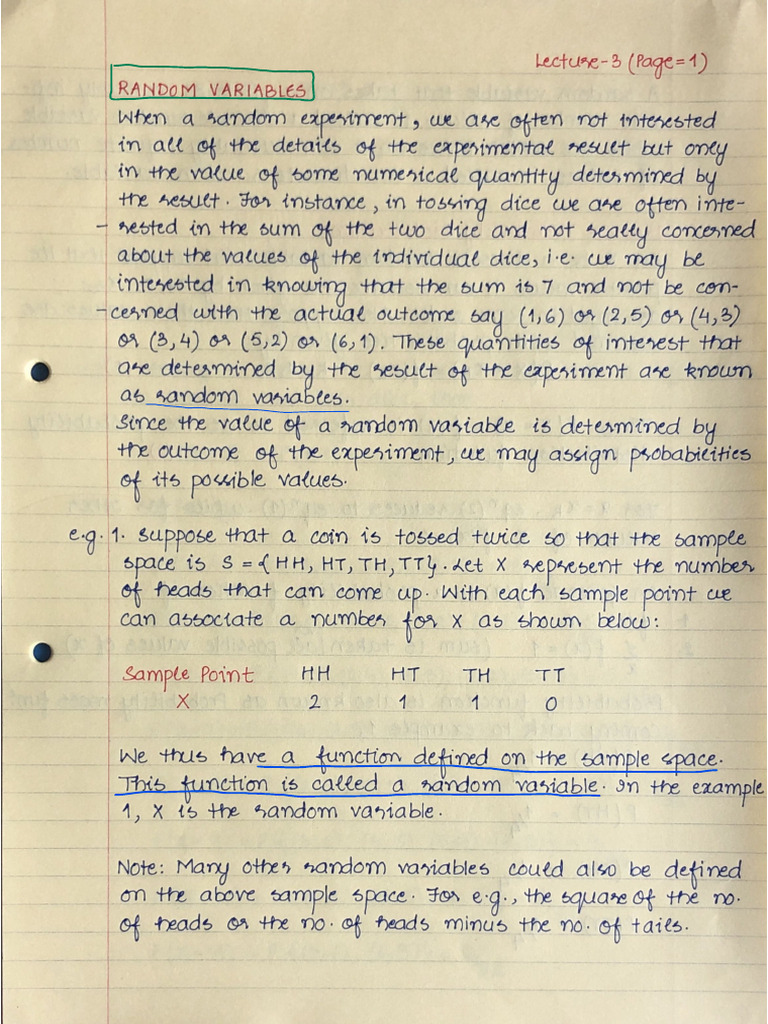 Lecture-3 (Page=1)
RANDOM VARIABLES
When a random experiment, we are often not interested
in all of the details of the experimental result but only
in the value of some numerical quantity determined by
the result. For instance, in tossing dice we are often inte-
- rested in the sum of the two dice and not really concerned
about the values of the individual dice, i.e. we may be
interested in knowing that the sum is 7 and not be con-
-cerned with the actual outcome say (1,6) or (2,5) or (4,3)
or (3,4) or (5,2) or (6,1). These quantities of interest that
are determined by the result of the experiment are known
as random variables.
Since the value of a random variable is determined by
the outcome of the experiment, we may assign probabilities
of its possible values.
e.g. 1. Suppose that a coin is tossed twice so that the sample
space is S = {HH, HT, TH, TT}. Let X represent the number
of heads that can come up. With each sample point we
can associate a number for X as shown below:
Sample Point HH HT TH TT
X 2 1 1 0
We thus have a function defined on the sample space.
This function is called a random variable. In the example
1, X is the random variable.
Note: Many other random variables could also be defined
on the above sample space. For e.g., the square of the no.
of heads or the no. of heads minus the no. of tails.